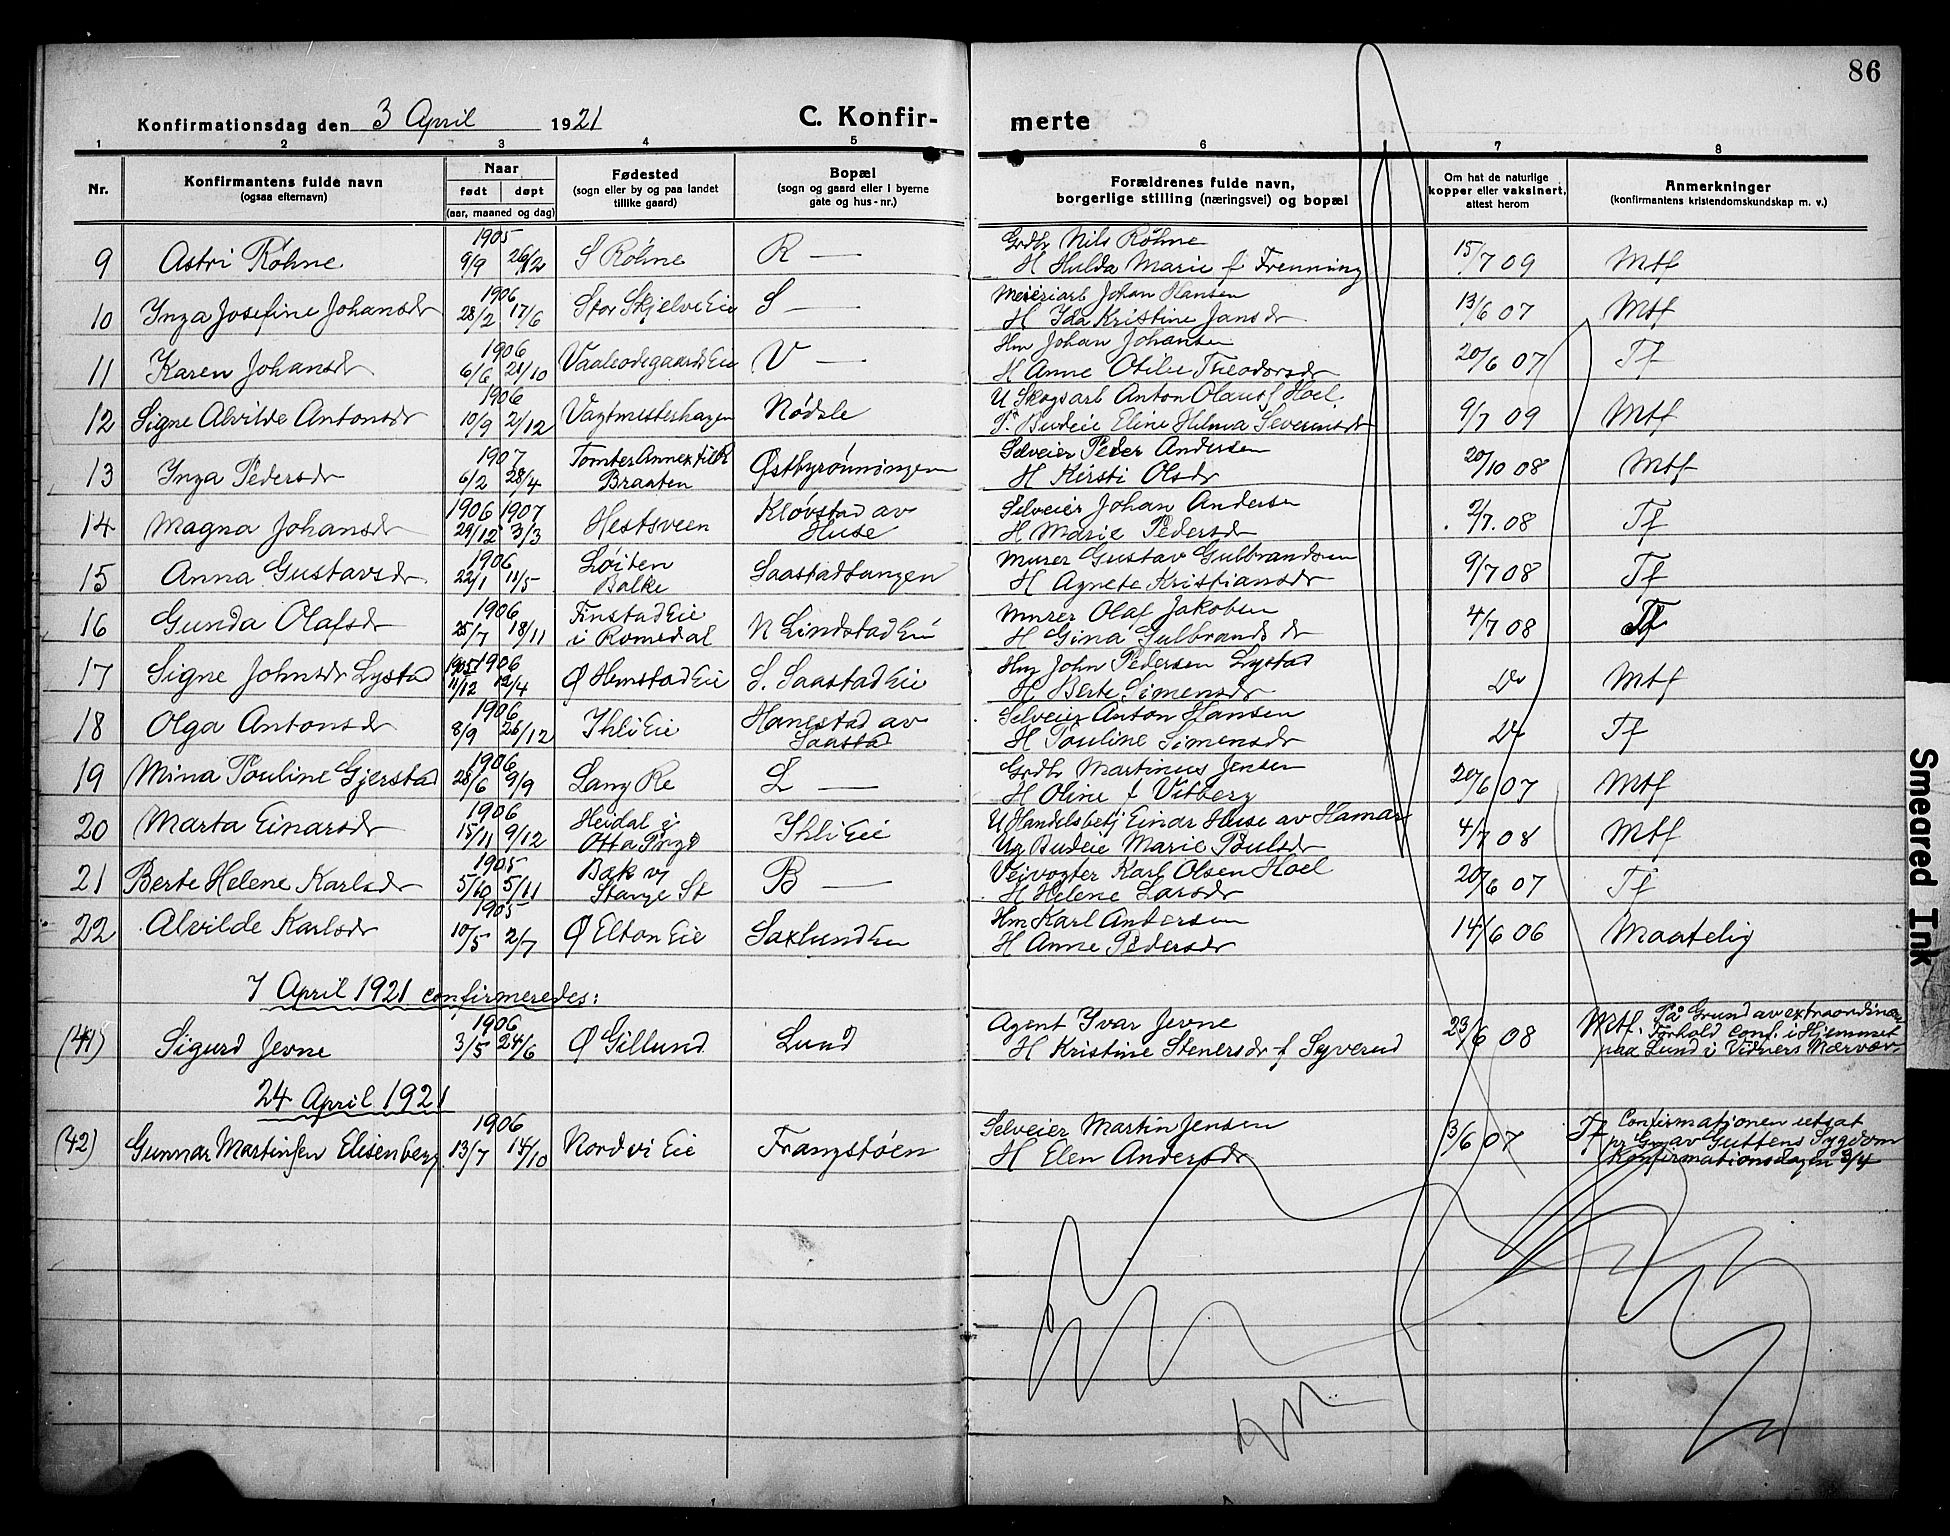 86
Konfirmationsdag den 3 April 1921 C. Konfir- merte
1 2 3 4 5 6 7 8
Nr. Konfirmantens fulde navn (ogsaa efternavn) Naar født døpt (aar, maaned og dag) Fødested (sogn eller by og paa landet tillike gaard) Bopæl (sogn og gaard eller i byerne gate og hus-nr.) Forældrenes fulde navn, borgerlige stilling (næringsvei) og bopæl Om hat de naturlige kopper eller vaksinert, attest herom Anmerkninger (konfirmantens kristendomskundskap m. v.)
1905 Grdbr Nils Røhne
9 Astri Røhne 9/9 26/12 S Røhne R — H Hulda Marie f Frenning 15/7 09 Mtf
1906 Meieriarb Johan Hansen
10 Inga Josefine Johansdr 28/2 17/6 Stor Skjelve Eie S — H Ida Kristine Jansdr 13/6 07 Mtf
1906 Hm Johan Johansen
11 Karen Johansdr 6/6 21/10 Vaaleodegaard Eie V — H Anne Otilie Theodorsdr 20/6 07 Tf
1906 U Skogsarb Anton Olausf Hoel
12 Signe Alvilde Antonsdr 10/9 2/12 Vagtmesterhagen Nødsle P. Budeie Eline Hilma Severinsdr 9/7 09 Mtf
1907 Tomter Annex til R Selveier Peder Andersen
13 Inga Pedersdr 6/2 28/4 Braaten Østbyrønningen H Kirsti Olsdr 20/10 08 Mtf
1906 1907 Kløvstad av Selveier Johan Andersen
14 Magna Johansdr 29/12 3/3 Hestsveen Huse H Marie Pedersdr 2/7.08 Tf
1906 Løiten Murer Gustav Gulbrandsen
15 Anna Gustavsdr 22/1 11/5 Balke Saastadtangen H Agnete Kristiansdr 9/7 08 Tf
1906 Finstad Eie Murer Olaf Jakobsen
16 Gunda Olafsdr 25/7 18/11 i Romedal N Lindstad Eie H Gina Gulbrandsdr 4/7 08 Tf
1905 1906 Hm John Pedersen Lystad
17 Signe Johnsdr Lystad 11/12 12/4 Ø Hemstad Eie S. Saastad Eie H Berte Simensdr Do Mtf
1906 Hanestad av Selveier Anton Hansen
18 Olga Antonsdr 8/9 26/12 Ihli Eie Saastad H Pauline Simensdr Do Tf
1906 Grdbr Martinus Jensen
19 Mina Pauline Gjerstad 28/6 9/9 Lang Re L — H Oline f Vitberg 20/6 07 Mtf
1906 Heidal i U Handelsbetj Einar Huse av Hamar
20 Marta Einarsdr 15/11 9/12 Otta Prgd Ihli Eie Ug Budeie Marie Paulsdr 4/7 08 Mtf
1905 Bæk v/ Veivogter Karl Olsen Hoel
21 Berte Helene Karlsdr 5/10 5/11 Stange St B — H Helene Larsdr 20/6 07 Tf
1905 Hm Karl Andersen
22 Alvilde Karlsdr 10/5 2/7 Ø Elton Eie Saxlund Eie H Anne Pedersdr 14/6 06 Maatelig
7 April 1921 confirmeredes:
1906 Agent Ivar Jevne Mtf. På Grund av extraordinær
(41) Sigurd Jevne 3/5 24/6 Ø Gillund Lund H Kristine Stenersdr f Syverud 23/6 08 Forhold conf. i Hjemmet
paa Lund i Vidners Nærvær.
24 April 1921
1906 Selveier Martin Jensen Tf Confirmationen utsat
(42) Gunnar Martinsen Elisenberg 13/7 14/10 Nordvi Eie Frangstøen H Elen Andersdr 3/6 07 pr Gr. av Guttens Sygdom
Konfirmationsdagen 3/4
Smeared Ink